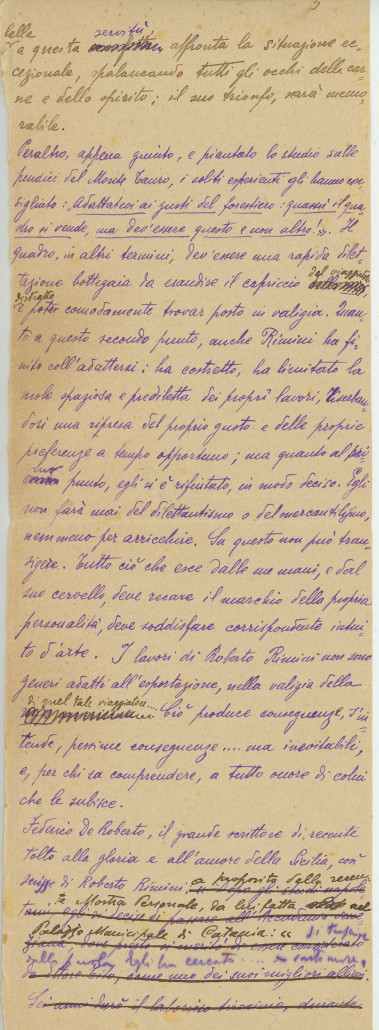 della servitù,
a questa affronta la situazione ec-
cezionale, spalancando tutti gli occhi della car-
ne e dello spirito; il suo trionfo, sarà memo-
rabile.
Peraltro, appena giunto, e piantato lo studio sulle
pendici del Monte Tauro, i soliti esperienti gli hanno con-
sigliato: "Adattatevi ai gusti del forestiero: quassù il qua-
dro si vende, ma dev'essere questo e non altro!". Il
quadro, in altri termini, dev'essere una rapida dilet-
tazione bottegaia da esaudire il capriccio del viaggiatore
distratto
e poter comodamente trovar posto in valigia. Quan-
to a questo secondo punto, anche Rimini ha fi-
nito coll'adattarsi; ha costretto, ha limitato la
mole spaziosa e prediletta dei proprî lavori, riserban-
dosi una ripresa del proprio gusto e delle proprie
preferenze a tempo opportuno; ma quanto al pri-
mo punto, egli si è rifiutato, in modo deciso. Egli
non farà mai del dilettantismo o del mercantilismo,
nemmeno per arricchire. Su questo non può tran-
sigere. Tutto ciò che esce dalle sue mani, e dal
suo cervello, deve recare il marchio della propria
personalità, deve soddisfare corrispondente intui-
to d'arte. I lavori di Roberto Rimini non sono
generi adatti all'esportazione, nella valigia della
di quel tale viaggiatore....
Ciò produce conseguenze, s'in-
tende, pessime conseguenze.... ma inevitabili,
e, per chi sa comprendere, a tutto onore di colui
che le subisce.
Federico De Roberto, il grande scrittore di recente
tolto alla gloria e all'amore della Sicilia, così
scrisse di Roberto Rimini, a proposito della recen-
te Mostra Personale, da lui fatta nel
Palazzo Municipale di Catania: "
Sei anni durò il laborioso tirocinio, durante